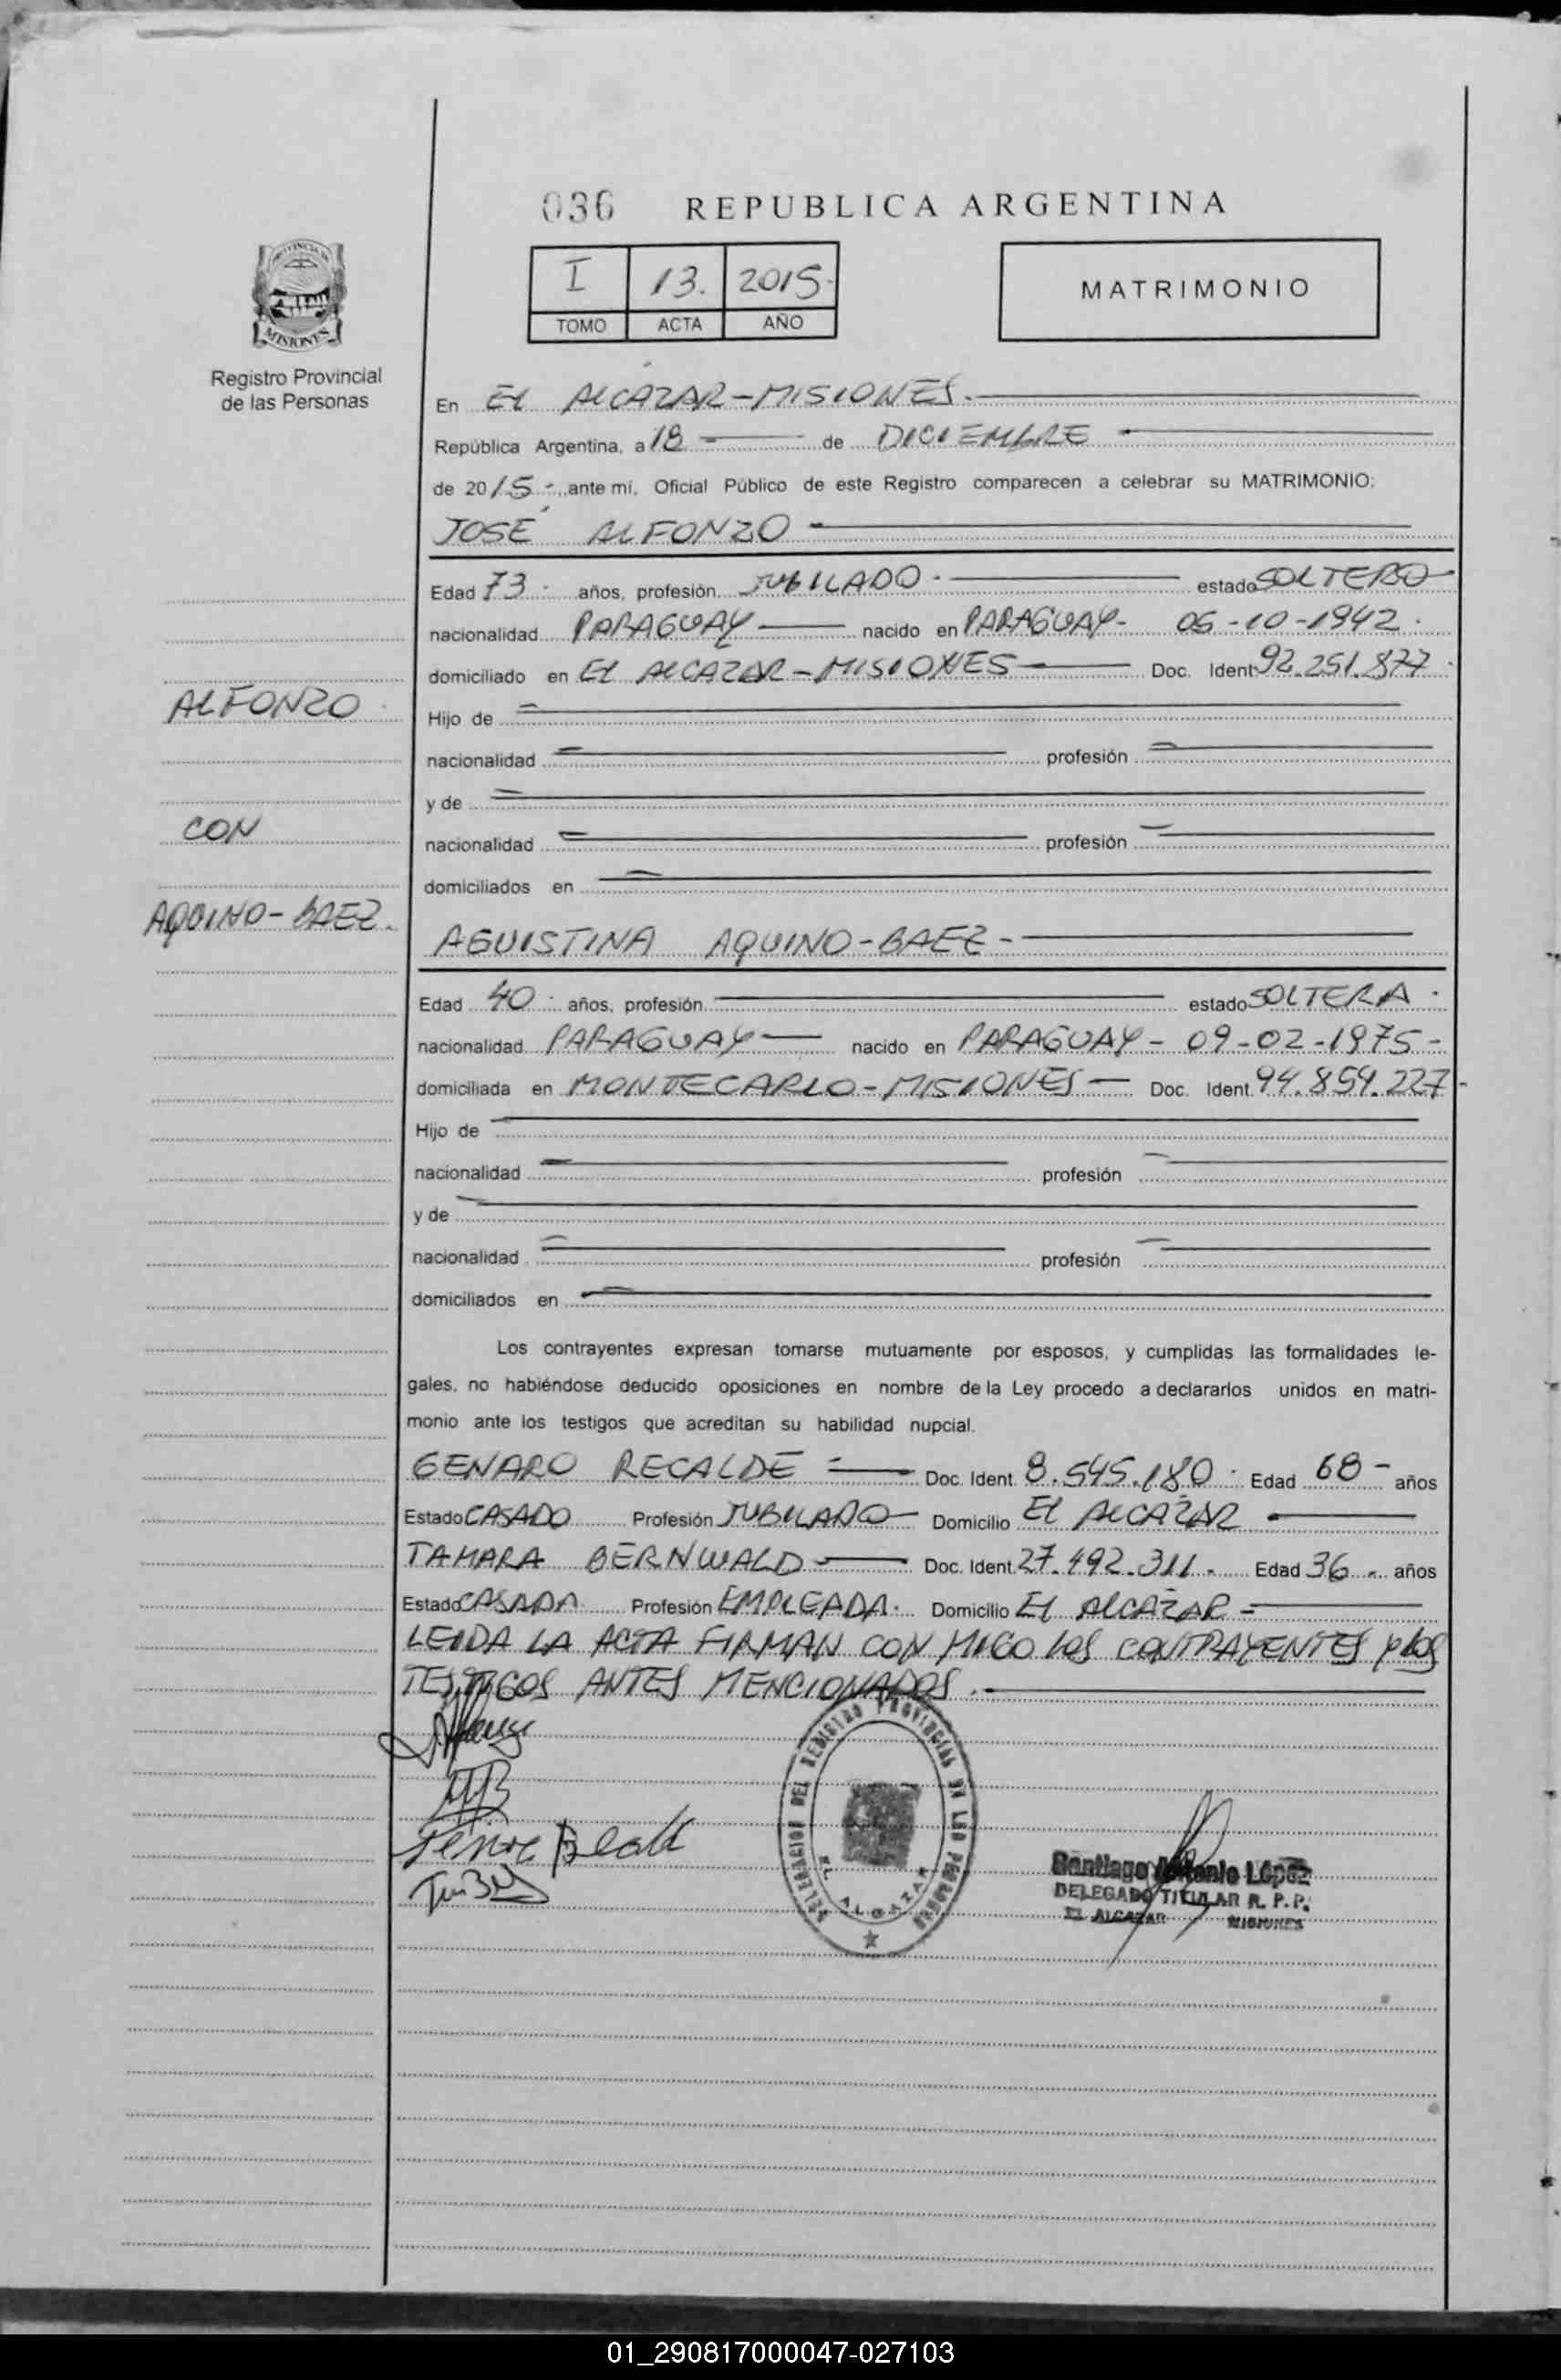 036 REPUBLICA ARGENTINA
I 13. 2015.
TOMO ACTA AÑO
MATRIMONIO
PROVINCIA DE
MISIONES
Registro Provincial
de las Personas
En EL ALCAZAR-MISIONES.
República Argentina, a 18 de DICIEMBRE
de 2015 -, ante mí, Oficial Público de este Registro comparecen a celebrar su MATRIMONIO:
JOSÉ ALFONZO
Edad 73 - años, profesión JUBILADO - estado SOLTERO
nacionalidad PARAGUAY nacido en PARAGUAY- 06-10-1942.
domiciliado en EL ALCAZAR-MISIONES Doc. Ident. 92.251.877.
ALFONZO
Hijo de
nacionalidad profesión
y de
CON
nacionalidad profesión
domiciliados en
AQUINO-BAEZ.
AGUISTINA AQUINO-BAEZ-
Edad 40 - años, profesión estado SOLTERA.
nacionalidad PARAGUAY nacido en PARAGUAY - 09-02-1975-
domiciliada en MONTECARLO-MISIONES Doc. Ident. 94.859.227-
Hijo de
nacionalidad profesión
y de
nacionalidad profesión
domiciliados en
Los contrayentes expresan tomarse mutuamente por esposos, y cumplidas las formalidades le-
gales, no habiéndose deducido oposiciones en nombre de la Ley procedo a declararlos unidos en matri-
monio ante los testigos que acreditan su habilidad nupcial.
GENARO RECALDE Doc. Ident. 8.545.180. Edad 68- años
Estado CASADO Profesión JUBILADO Domicilio EL ALCAZAR
TAMARA BERNWALD Doc. Ident. 27.492.311. Edad 36 - años
Estado CASADA Profesión EMPLEADA. Domicilio EL ALCAZAR-
LEIDA LA ACTA FIRMAN CON MIGO LOS CONTRAYENTES y LOS
TESTIGOS ANTES MENCIONADOS.
DELEGACION DEL REGISTRO PROVINCIAL DE LAS PERSONAS
EL ALCAZAR
Santiago Antonio López
DELEGADO TITULAR R. P. P.
EL ALCAZAR MISIONES
01_290817000047-027103